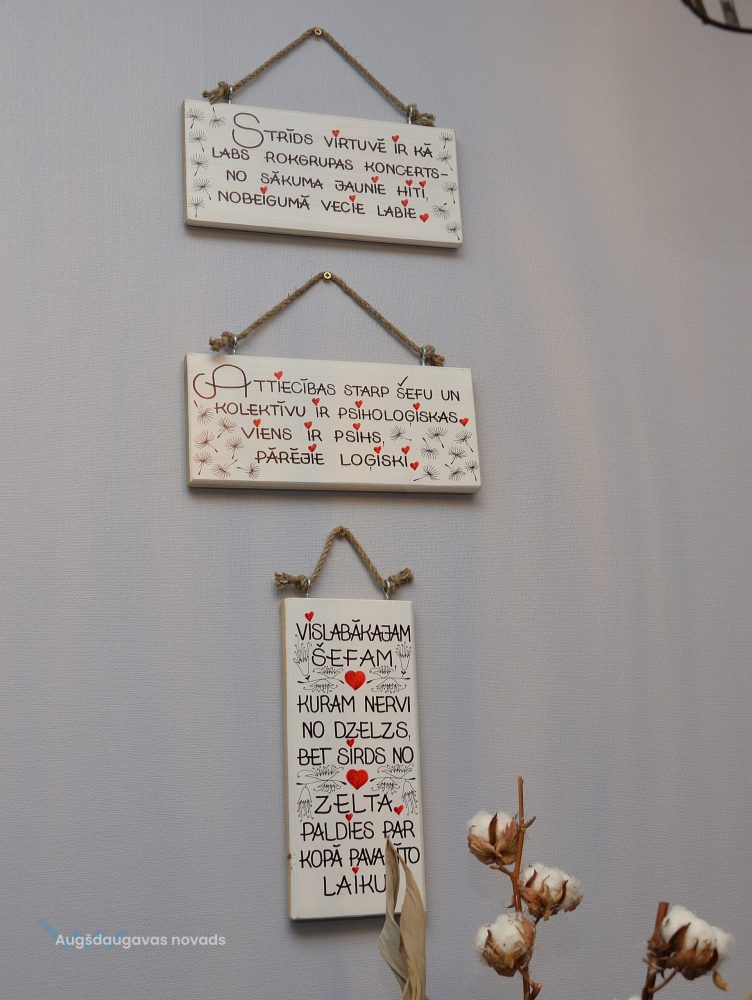 STRĪDS VIRTUVĒ IR KĀ
LABS ROKGRUPAS KONCERTS-
NO SĀKUMA JAUNIE HITI,
NOBEIGUMĀ VECIE LABIE.
ATTIECĪBAS STARP ŠEFU UN
KOLEKTĪVU IR PSIHOLOĢISKAS.
VIENS IR PSIHS,
PĀRĒJIE LOĢISKI.
VISLABĀKAJAM
ŠEFAM,
KURAM NERVI
NO DZELZS,
BET SIRDS NO
ZELTA.
PALDIES PAR
KOPĀ
LAIKU
Augšdaugavas novads